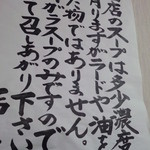 店のスープは多少濃
ありますがラードや油を
た物ではありません。
がらスープのみですので
て召しあがり下さい